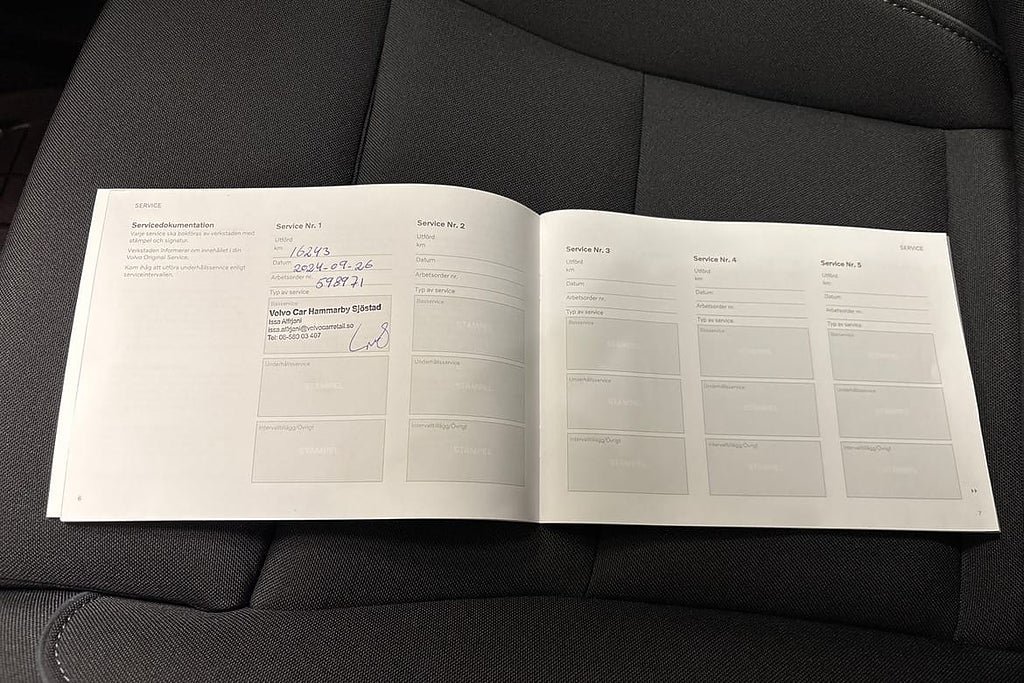 SERVICE
Servicedokumentation
Varje service ska bokföras av verkstaden med
stämpel och signatur.
Verkstaden informerar om innehållet i din
Volvo Original Service.
Kom ihåg att utföra underhållsservice enligt
serviceintervallen.
6
Service Nr. 1
Utförd
km 16243
Datum 2024-09-26
Arbetsorder nr. 598971
Typ av service
Basservice
Volvo Car Hammarby Sjöstad
Issa Affrjani
issa.affrjani@volvocarretail.se
Tel: 08-580 03 407
Underhållsservice
STÄMPEL
Intervalltillägg/Övrigt
STÄMPEL
Service Nr. 2
Utförd
km
Datum
Arbetsorder nr.
Typ av service
Basservice
STÄMPEL
Underhållsservice
STÄMPEL
Intervalltillägg/Övrigt
STÄMPEL
Service Nr. 3
Utförd
km
Datum
Arbetsorder nr.
Typ av service
Basservice
STÄMPEL
Underhållsservice
STÄMPEL
Intervalltillägg/Övrigt
STÄMPEL
Service Nr. 4
Utförd
km
Datum
Arbetsorder nr.
Typ av service
Basservice
STÄMPEL
Underhållsservice
STÄMPEL
Intervalltillägg/Övrigt
STÄMPEL
SERVICE
Service Nr. 5
Utförd
km
Datum
Arbetsorder nr.
Typ av service
Basservice
STÄMPEL
Underhållsservice
STÄMPEL
Intervalltillägg/Övrigt
STÄMPEL
7